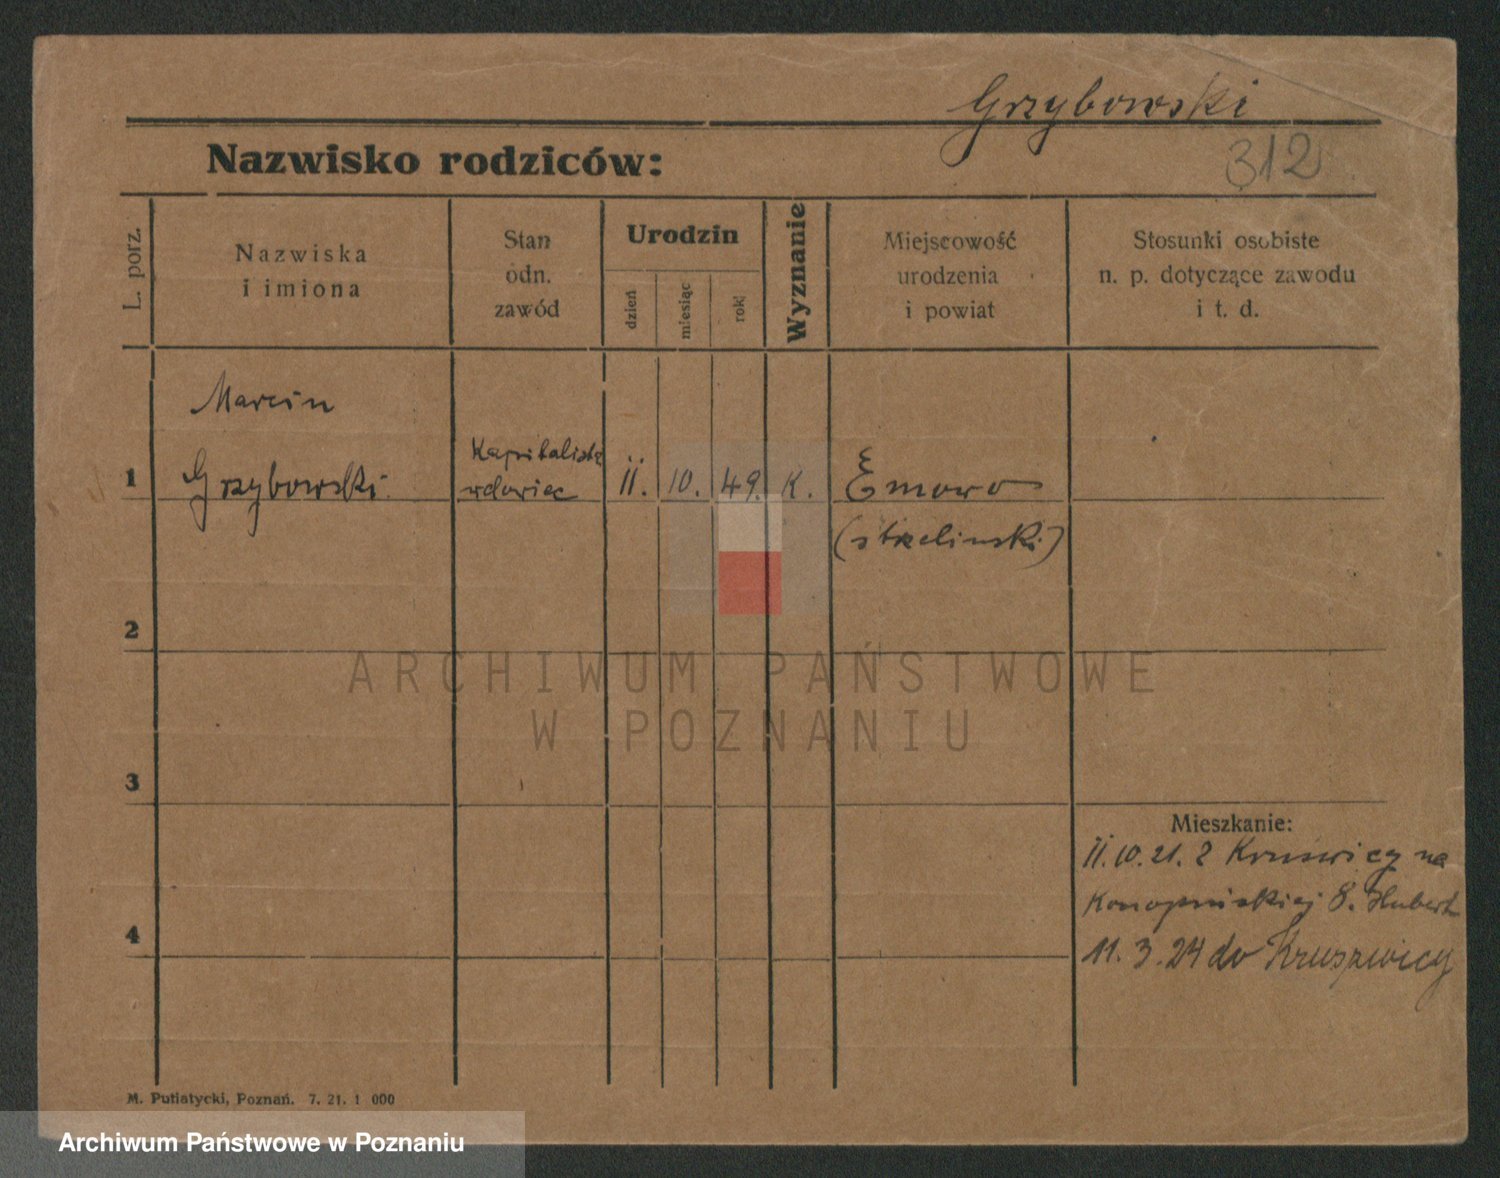 Grzybowski
312
Nazwisko rodziców:
L. porz.
Nazwiska
i imiona
Stan
odn.
zawód
Urodzin
dzień
miesiąc
rok
Wyznanie
Miejscowość
urodzenia
i powiat
Stosunki osobiste
n. p. dotyczące zawodu
i t. d.
Marcin
1
Grzybowski
Kapitalista
wdowiec
11.
10.
49.
K.
(strzelinski)
2
3
4
Mieszkanie:
11.10.21. z Kruswicy na
8. Hubert
11.3.24 do Kruszwicy
ARCHIWUM PAŃSTWOWE
W POZNANIU
M. Putiatycki, Poznań. 7. 21. 1 000
Archiwum Państwowe w Poznaniu